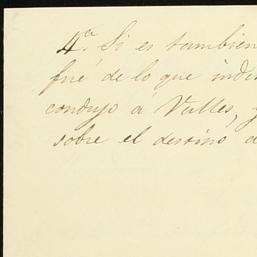 4ª. Si es tambien
fué de lo que
condujo á Valles,
sobre el destino d